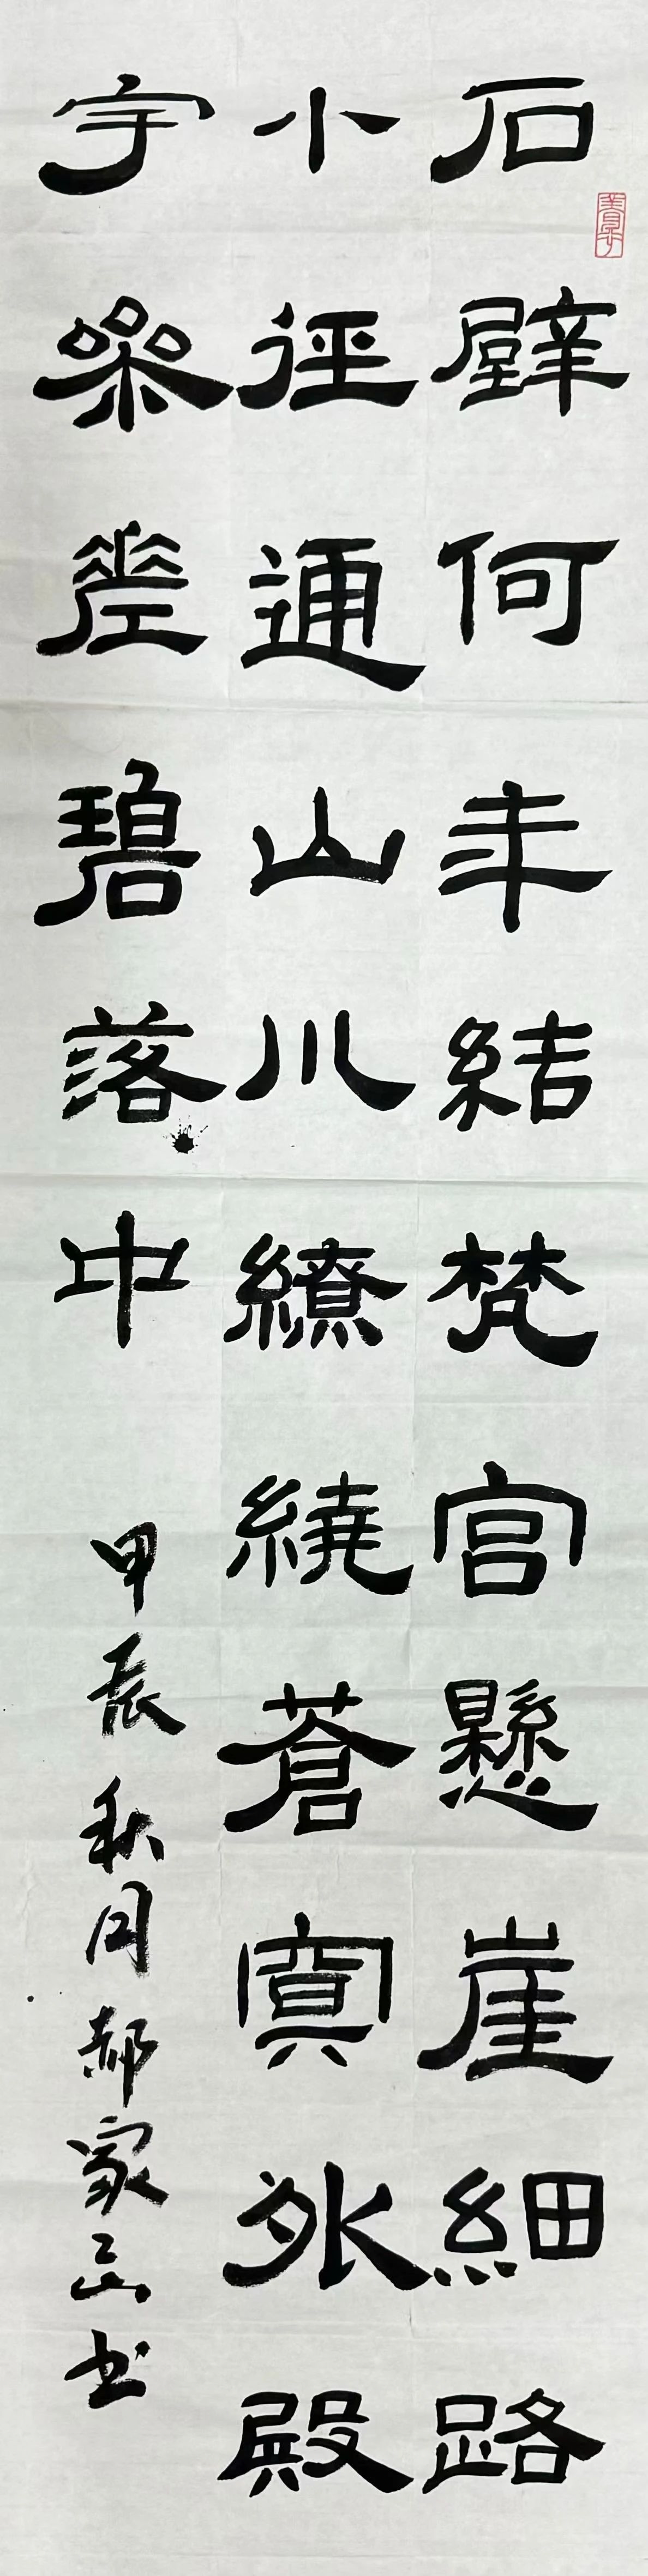 石壁何年結梵宮懸崖細路
小徑通山川繚繞蒼冥外殿
宇參差碧落中
甲辰秋月郝家山书